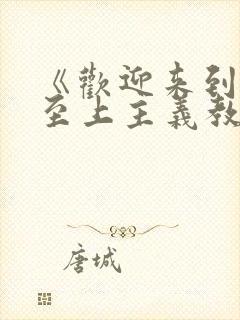 《歡迎来到
至上主義教
唐城